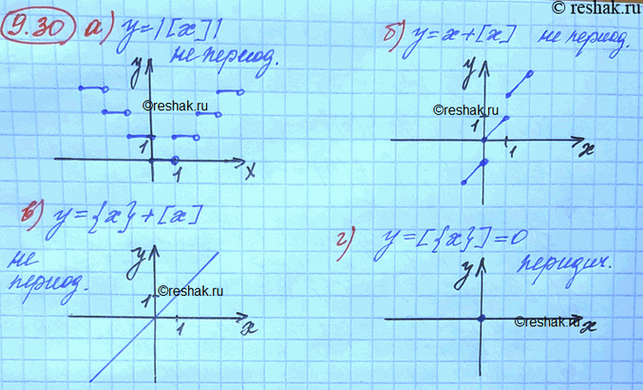 © reshak.ru
9.30 а) y=|[x]|
не период.
б) y=x+[x] не период.
y
©reshak.ru
1
1
x
y
©reshak.ru
1
1
x
в) y={x}+[x]
не
период.
y
©reshak.ru
1
1
x
г) y=[{x}]=0
перидич.
y
©reshak.ru
x